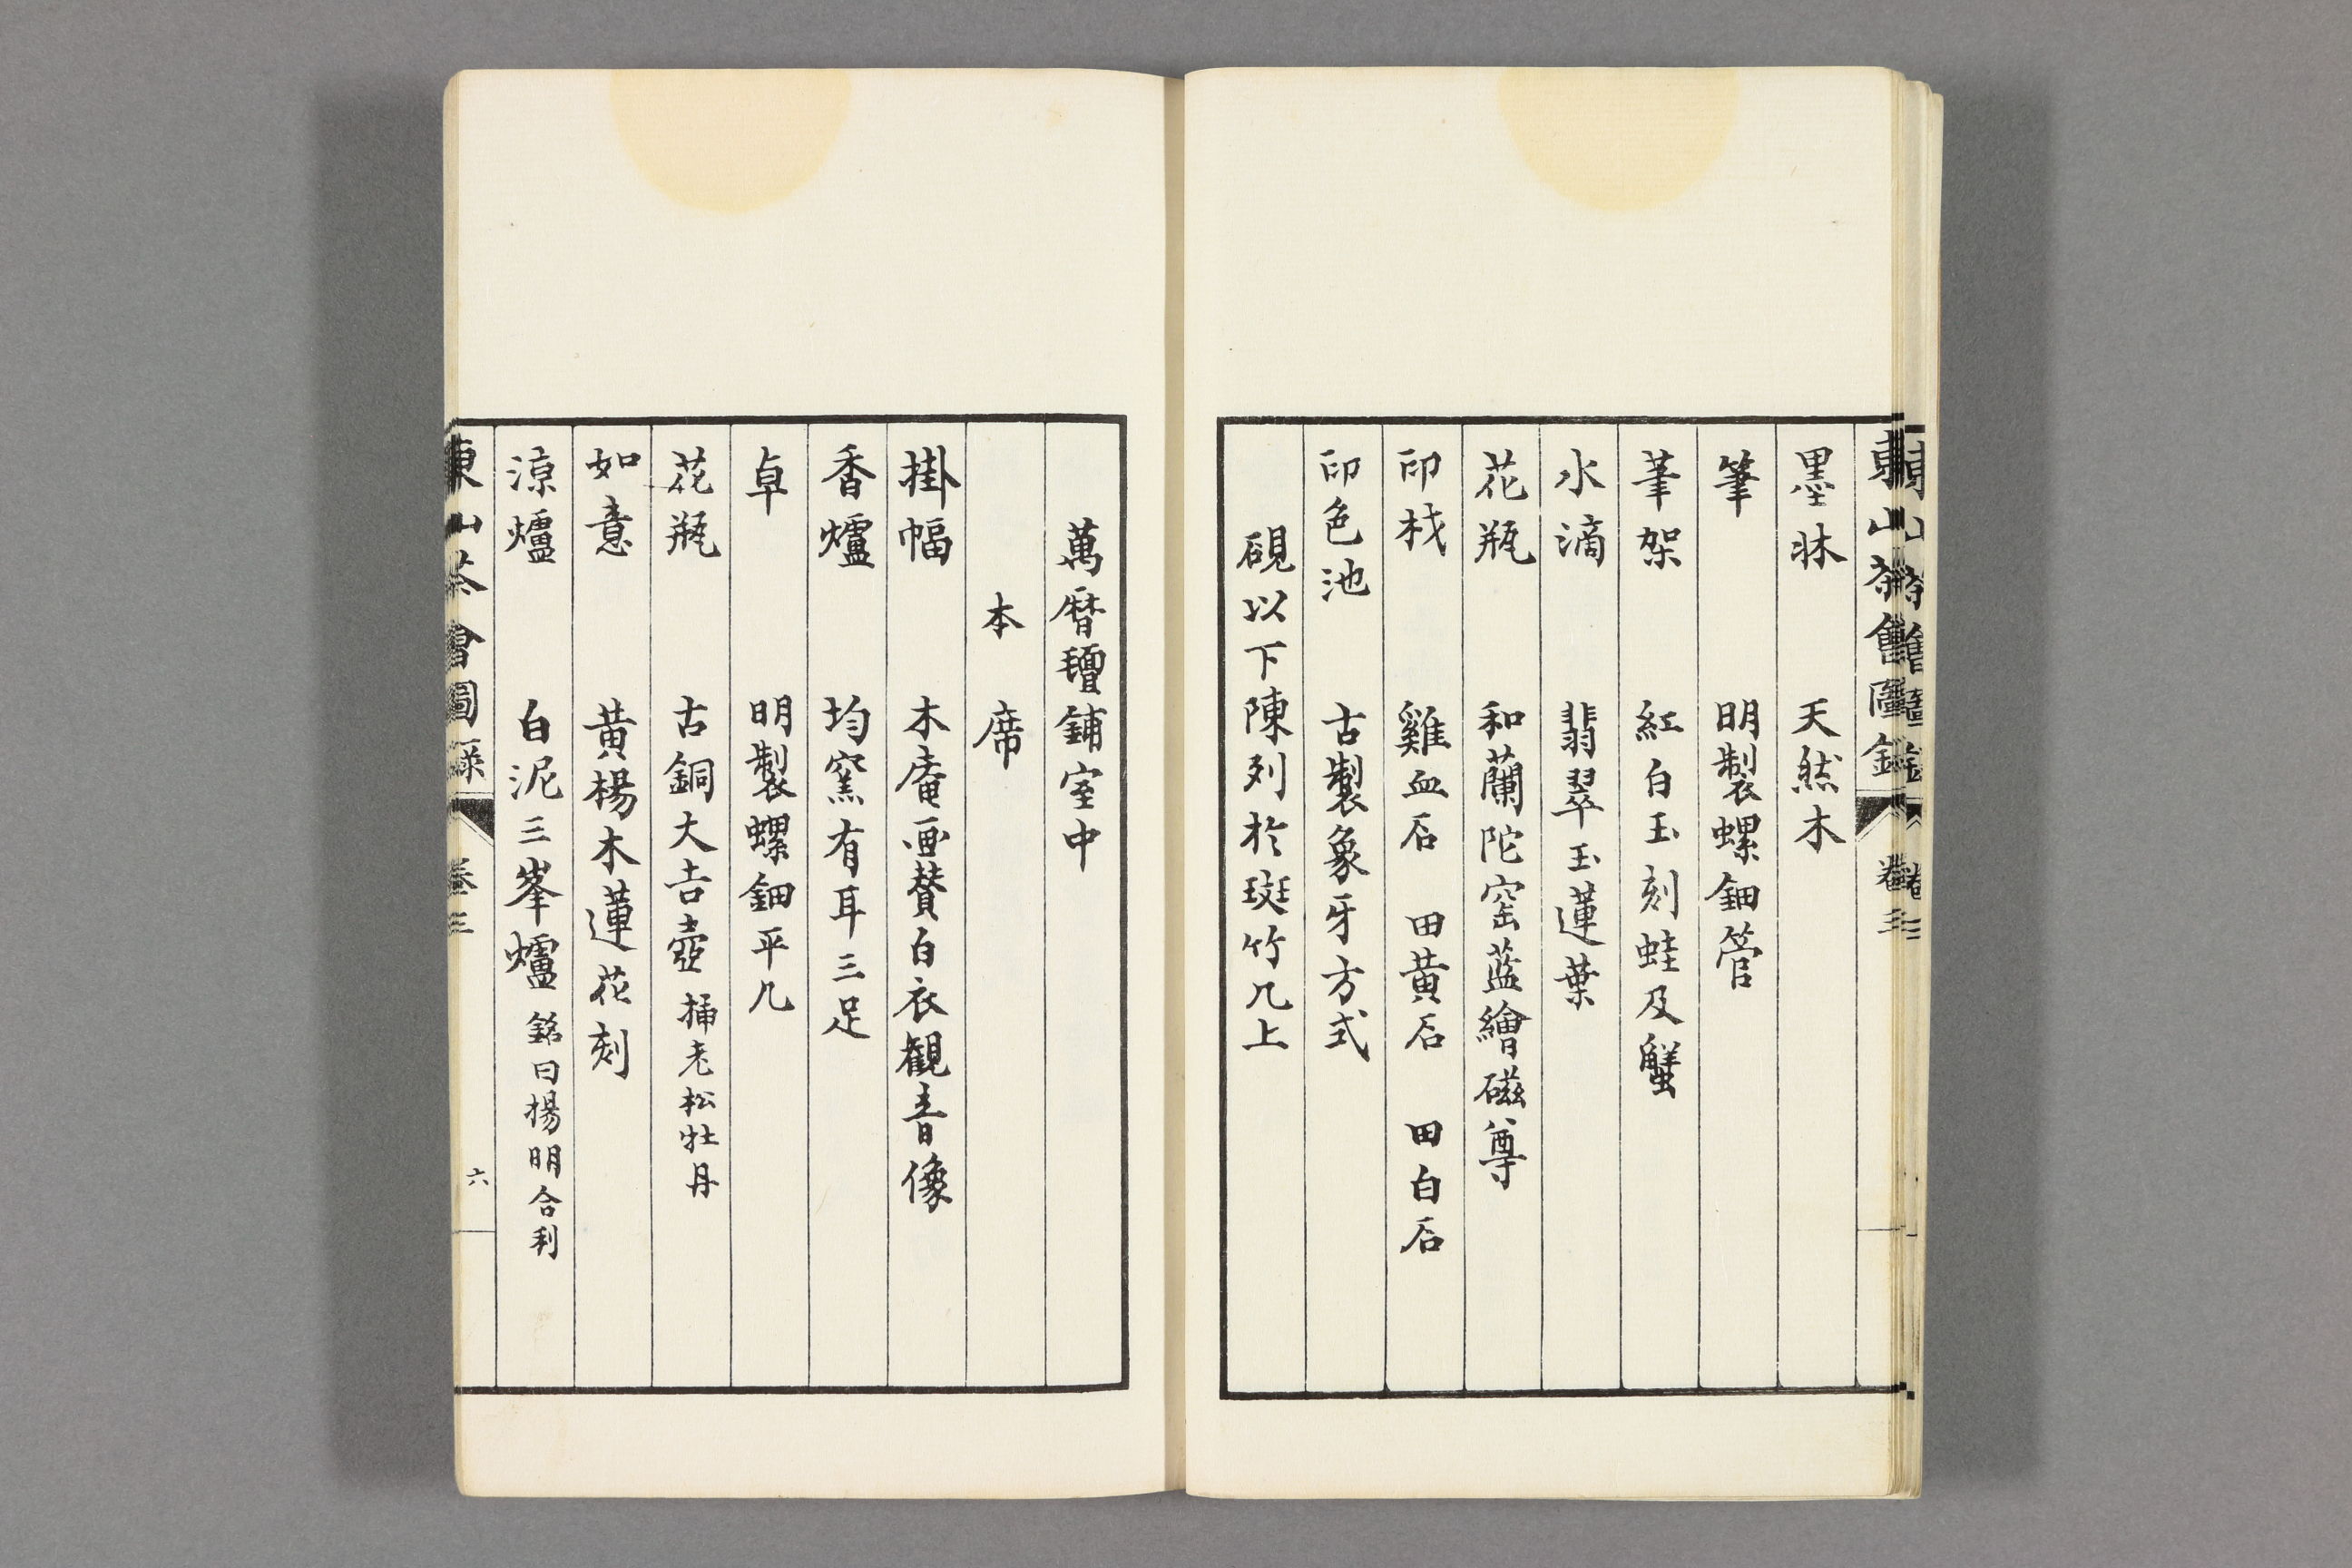 東山茶會圖錄 卷三
墨牀 天然木
筆 明製螺鈿管
筆架 紅白玉刻蛙及蟹
水滴 翡翠玉蓮葉
花瓶 和蘭陀窑藍繪磁尊
印材 雞血石 田黃石 田白石
印色池 古製象牙方式
硯以下陳列於斑竹几上
萬曆氊鋪室中
本席
掛幅 木庵画賛白衣観音像
香爐 均窯有耳三足
卓 明製螺鈿平几
花瓶 古銅大吉壺 插老松牡丹
如意 黃楊木蓮花刻
涼爐 白泥三峯爐 銘曰楊明合利
東山茶會圖錄 卷三 六